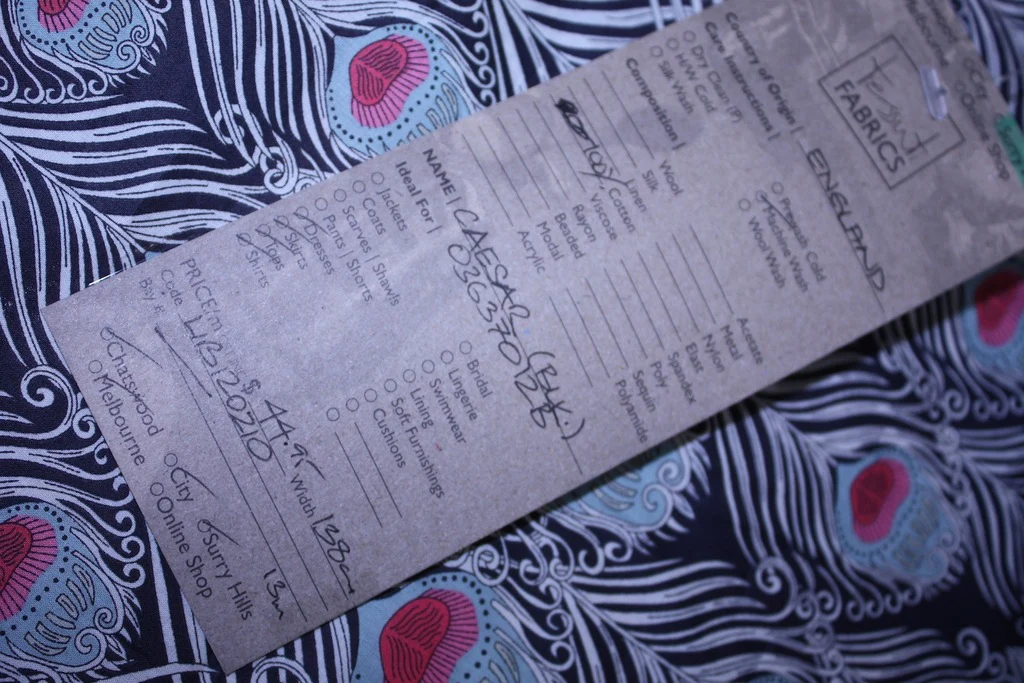 Tessuti
FABRICS
Country of Origin | ENGLAND
Care Instructions |
Dry Clean (P)
H/W Cold
Silk Wash
Prewash Cold
Machine Wash
Wool Wash
Composition |
Wool
Silk
Linen
100% Cotton
Viscose
Rayon
Beaded
Modal
Acrylic
Acetate
Metal
Nylon
Elast
Spandex
Poly
Sequin
Polyamide
NAME | CAESAR (BLK.)
03G3701ZB
Ideal For |
Jackets
Coats
Scarves | Shawls
Pants | Shorts
Dresses
Skirts
Tops
Shirts
Bridal
Lingerie
Swimwear
Lining
Soft Furnishings
Cushions
PRICE/m $44.95 Width 138cm
Code LIB20210 13m
Bay
Chatswood City Surry Hills
Melbourne Online Shop